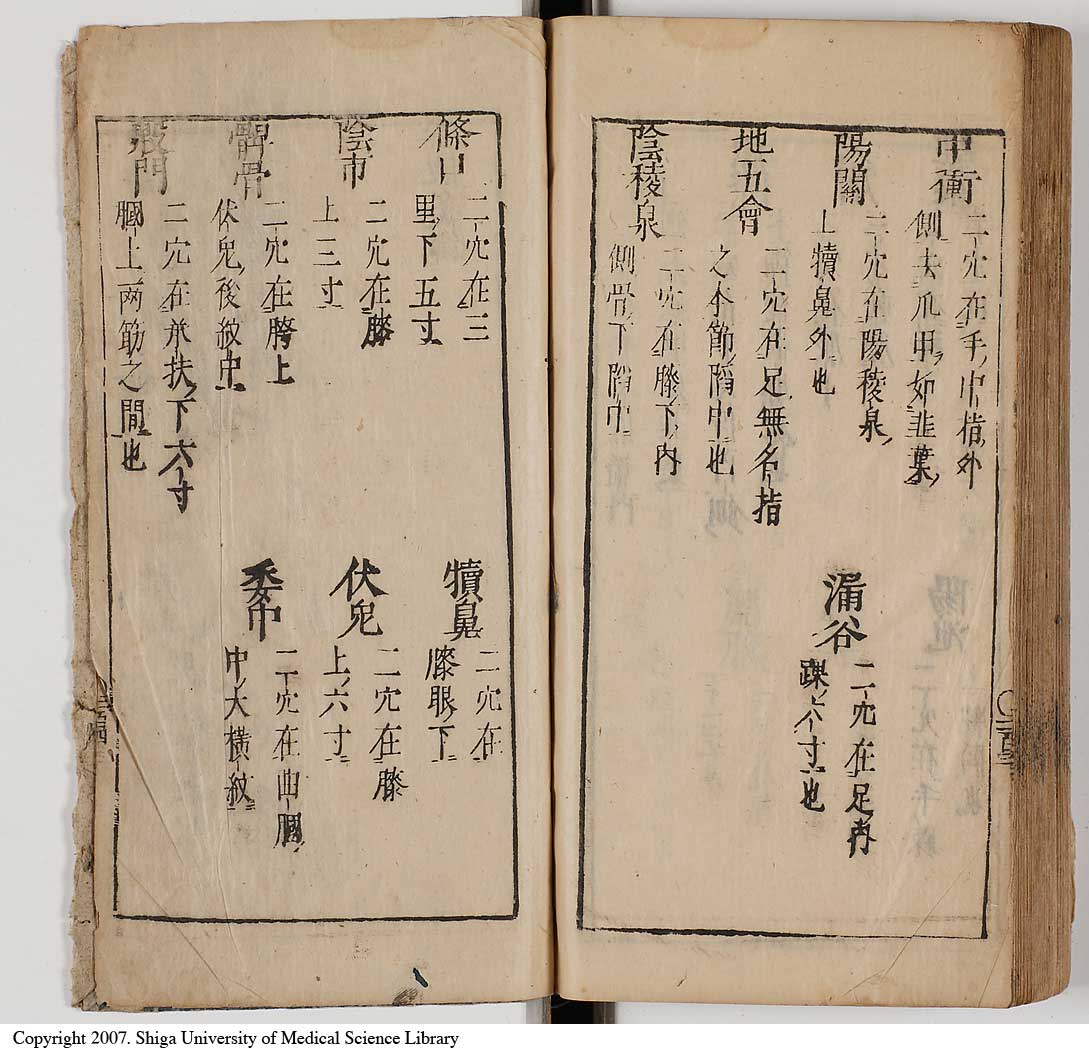 中衝
二穴在手中指外
側去爪甲如韭葉
陽關
二穴在陽稜泉
上犢鼻外也
漏谷
二穴在足內
踝上六寸也
地五會
二穴在足無名指
之本節陷中也
陰稜泉
二穴在膝下內
側骨下陷中
條口
二穴在三
里下五寸
犢鼻
二穴在
膝眼下
陰市
二穴在膝
上三寸
伏兔
二穴在膝
上六寸
髀骨
二穴在胯上
伏兔後紋中
委中
二穴在曲膕
中大橫紋
殷門
二穴在承扶下六寸
膕上兩筋之間也
Copyright 2007. Shiga University of Medical Science Library